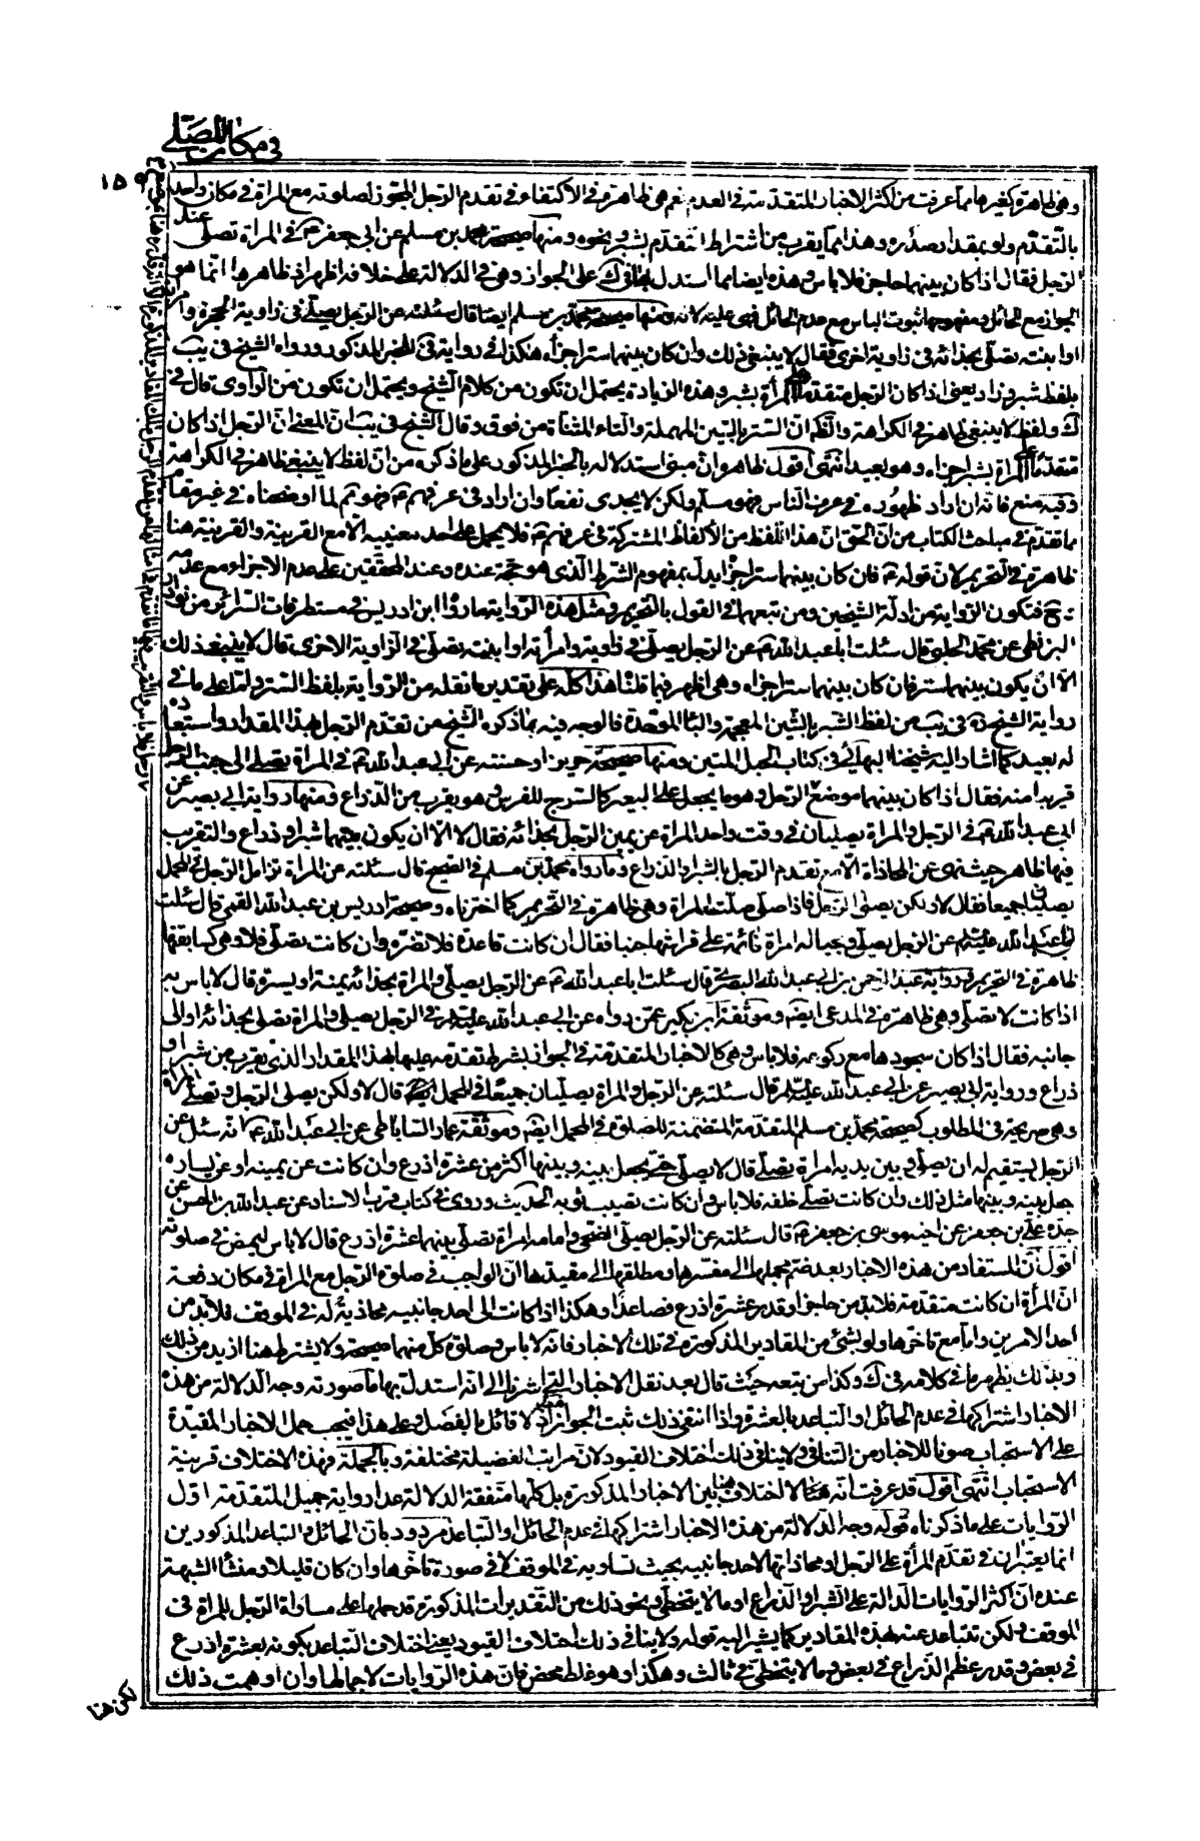 في مكان المصلي
١٥٩
وهي ظاهرة كغيرها مما عرفت من اكثر الاخبار المتقدمة في العدم نعم هي ظاهرة في الاكتفاء في تقدم الرجل المجوز لصلوته مع المراة في مكان واحد
بالتقدم ولو بمقدار صدره وهذا مما يقرب من اشتراط التقدم بشبر ونحوه ومنها صحيحة محمد بن مسلم عن ابي جعفر ع في المراة تصلي عند
الرجل فقال اذا كان بينهما حاجز فلا باس وهذه ايضا مما استدل بها في ك على الجواز وهي في الدلالة على خلافه اظهر اذ ظاهرها انما هو
الجواز مع الحائل ومفهومها ثبوت الباس مع عدم الحائل فهي عليه لا له ومنها صحيحة محمد بن مسلم ايضا قال سئلته عن الرجل يصلي في زاوية الحجرة وامراته
او ابنته تصلي بحذائه في زاوية اخرى فقال لا ينبغي ذلك وان كان بينهما ستر اجزأه هكذا في رواية في الخبر المذكور ورواه الشيخ في يب
بلفظ شبر وزاد يعني اذا كان الرجل متقدما على المرأة بشبر وهذه الزيادة يحتمل ان تكون من كلام الشيخ ويحتمل ان تكون من الراوي قال في
ك ولفظ لا ينبغي ظاهر في الكراهة والظ ان الستر بالسين المهملة والتاء المثناة من فوق وقال الشيخ في يب ان المعنى ان الرجل اذا كان
متقدما على المراة بشبر اجزاه وهو بعيد انتهى اقول ظاهره ان مبنى استدلاله بالخبر المذكور على ما ذكره من ان لفظ لا ينبغي ظاهر في الكراهة
وفيه منع فانه ان اراد ظهوره في عرف الناس فهو مسلم ولكن لا يجدي نفعا وان اراد في عرفهم ع فهو ثم لما اوضحناه في غير مقام
مما تقدم في مباحث الكتاب من ان الحق ان هذا اللفظ من الالفاظ المشتركة في عرفهم ع فلا يحمل على احد معنييه الا مع القرينة والقرينة هنا
ظاهرة في التحريم لان قوله ع فان كان بينهما ستر اجزأ يدل بمفهوم الشرط الذي هو حجة عنده وعند المحققين على عدم الاجزاء مع عدمه
وح فتكون الرواية من ادلة الشيخين ومن تبعهما في القول بالتحريم ومثل هذه الرواية ما رواه ابن ادريس في مستطرفات السرائر من نوادر
البزنطي عن محمد الحلبي قال سئلت ابا عبد الله ع عن الرجل يصلي في زاوية وامراته او ابنته تصلي في الزاوية الاخرى قال لا ينبغي ذلك
الا ان يكون بينهما ستر فان كان بينهما ستر اجزاه وهي اظهر فيما قلنا هذا كله على تقدير ما نقله من الرواية بلفظ الستر واما على ما في
رواية الشيخ ره في يب من لفظ الشبر بالشين المعجمة والباء الموحدة فالوجه فيه ما ذكره الشيخ من تقدم الرجل بهذا المقدار واستبعاده
له بعيد كما اشار اليه شيخنا البهائي في كتاب الحبل المتين ومنها صحيحة حريز او حسنته عن ابي عبد الله ع في المراة تصلي الى جنب الرجل
قريبا منه فقال اذا كان بينهما موضع الرحل وهو ما يجعل على البعير كالسرج للفرس وهو يقرب من الذراع ومنها رواية ابي بصير عن
ابي عبد الله ع في الرجل والمراة يصليان في وقت واحد المراة عن يمين الرجل بحذائه فقال لا الا ان يكون بينهما شبر او ذراع والتقريب
فيها ظاهر حيث نهى عن المحاذاة الا مع تقدم الرجل بالشبر والذراع وما رواه محمد بن مسلم في الصحيح قال سئلته عن المراة تزامل الرجل في المحمل
يصليان جميعا فقال لا ولكن يصلي الرجل فاذا صلى صلت المراة وهي ظاهرة في التحريم كما اخترناه وصحيحة ادريس بن عبد الله القمي قال سئلت
ابا عبد الله عليه السلام عن الرجل يصلي وبحياله امراة نائمة على فراشها جنبا فقال ان كانت قاعدة فلا تضره وان كانت تصلي فلا وهي كسابقتها
ظاهرة في التحريم ورواية عبد الرحمن بن ابي عبد الله البصري قال سئلت ابا عبد الله ع عن الرجل يصلي والمراة بحذائه يمنة او يسرة قال لا باس به
اذا كانت لا تصلي وهي ظاهرة في المدعى ايضا وموثقة ابن بكير عمن رواه عن ابي عبد الله عليه السلام في الرجل يصلي والمراة تصلي بحذائه او الى
جانبه فقال اذا كان سجودها مع ركوعه فلا باس وهي كالاخبار المتقدمة في الجواز بشرط تقدمه عليها بهذا المقدار الذي يقرب من شبر او
ذراع ورواية ابي بصير عن ابي عبد الله عليه السلام قال سئلته عن الرجل والمراة يصليان جميعا في المحمل قال لا ولكن يصلي الرجل وتصلي المراة
وهي صريحة في المطلوب كصحيحة محمد بن مسلم المتقدمة المتضمنة للصلوة في المحمل ايضا وموثقة عمار الساباطي عن ابي عبد الله ع انه سئل عن
الرجل يستقيم له ان يصلي وبين يديه امراة تصلي قال لا يصلي حتى يجعل بينه وبينها اكثر من عشرة اذرع وان كانت عن يمينه او عن يساره
جعل بينه وبينها مثل ذلك وان كانت تصلي خلفه فلا باس وان كانت تصيب ثوبه الحديث وروى في كتاب قرب الاسناد عن عبد الله بن الحسن عن
جده علي بن جعفر عن اخيه موسى بن جعفر ع قال سئلته عن الرجل يصلي الضحى وامامه امراة تصلي بينهما عشرة اذرع قال لا باس ليمض في صلوته
اقول ان المستفاد من هذه الاخبار بعد ضم مجملها الى مفسرها ومطلقها الى مقيدها ان الواجب في صلوة الرجل مع المراة في مكان دفعة
ان المرأة ان كانت متقدمة فلا بد من حاجز او قدر عشرة اذرع فصاعدا وهكذا اذا كانت الى احد جانبيه محاذية له في الموقف فلا بد من
احد الامرين واما مع تاخرها ولو بشئ من المقادير المذكورة في تلك الاخبار فانه لا باس وصلوة كل منهما صحيحة ولا يشترط هنا ازيد من ذلك
وبذلك يظهر ما في كلامه في ك وكذا من تبعه حيث قال بعد نقل الاخبار التي اشرنا الى انه استدل بها ما صورته وجه الدلالة من هذه
الاخبار اشتراكها في عدم الحائل او التباعد بالعشرة واذا انتفى ذلك ثبت الجواز اذ لا قائل بالفصل وعلى هذا فيجب حمل الاخبار المقيدة
على الاستحباب صونا للاخبار من التنافي ولا ينافي ذلك اختلاف القيود لان مراتب الفضيلة مختلفة وبالجملة فهذه الاختلاف قرينة
الاستحباب انتهى اقول قد عرفت انه لا اختلاف هنا بين الاخبار المذكورة بل كلها متفقة الدلالة عدا رواية جميل المتقدمة اول
الروايات على ما ذكرناه قوله وجه الدلالة من هذه الاخبار اشتراكها في عدم الحائل او التباعد مردود بان الحائل والتباعد المذكورين
انما يعتبران في تقدم المرأة على الرجل او محاذاتها لاحد جانبيه بحيث تساويه في الموقف لا في صورة تاخرها وان كان قليلا ومنشأ الشبهة
عنده ان اكثر الروايات الدالة على الشبر او الذراع او ما لا يتخطى ونحو ذلك من التقديرات المذكورة قد حملها على مساواة الرجل للمراة في
الموقف ولكن تتباعد عنه بهذه المقادير كما يشير اليه قوله ولا ينافي ذلك اختلاف القيود يعني اختلاف التباعد بكونه بعشرة اذرع
في بعض وقدر عظم الذراع في بعض وما لا يتخطى في ثالث وهكذا وهو غلط محض فان هذه الروايات لاجمالها وان اوهمت ذلك
لكن هنا